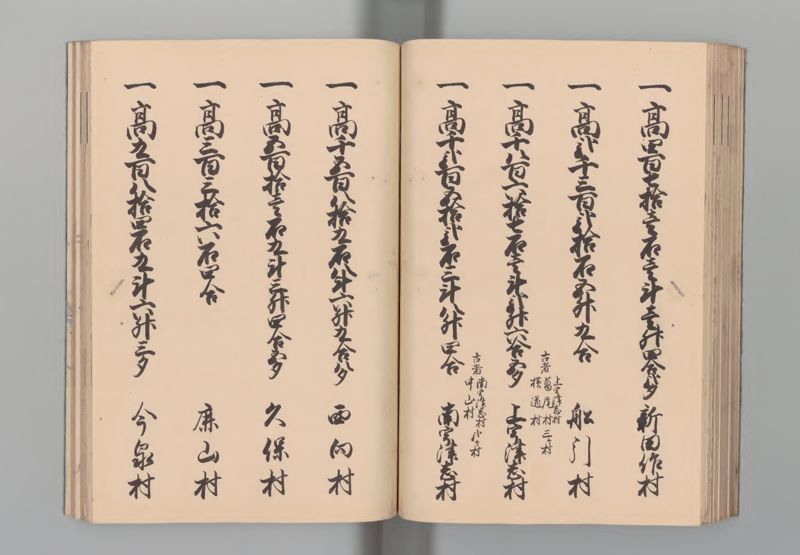 一高四百七拾壱石壱斗壱升四合弐夕 新田作村
一高弐千三百弐拾石五升九合 舩引村
一高千八百六拾七石壱斗弐升六合五夕 上宇津志村
古者
上宇津志村
葛尾村
栢道村
三ヶ村
一高千弐百五拾弐石三斗八升四合 南宇津志村
古者
南宇津志村
中山村
弐ヶ村
一高千五百八拾九石八斗六升九合八夕 西向村
一高五百拾壱石九斗三升四合五夕 久保村
一高三百三拾六石四合 麻山村
一高九百八拾四石九斗六升三夕 今泉村